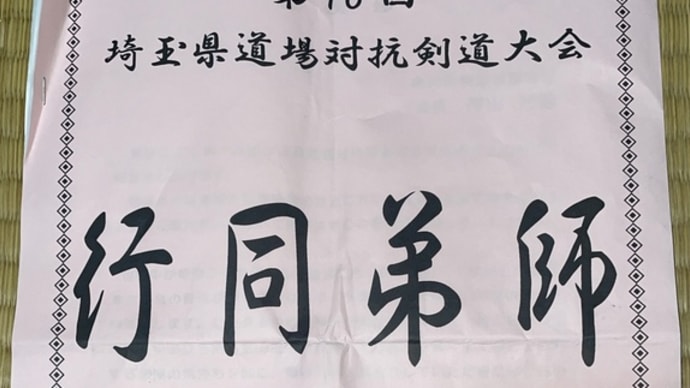 埼玉県道場対抗剣道大会
師弟同行